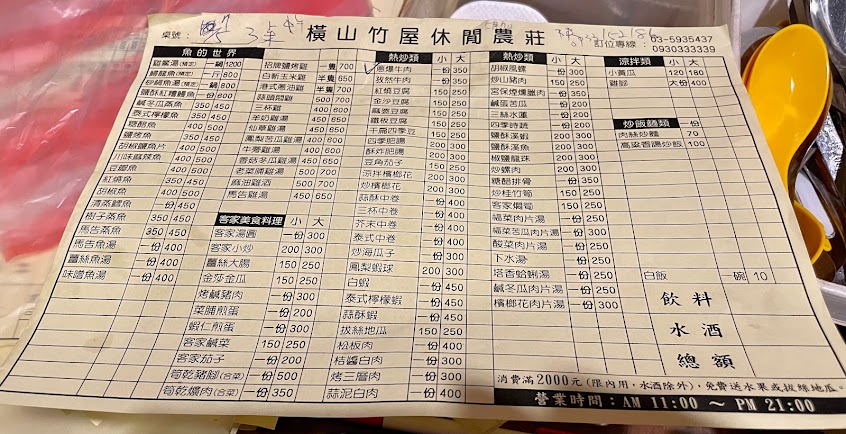 桌號：
3桌
橫山竹屋休閒農莊
訂位專線：
03-5935437
0930333339
魚的世界
一鍋 1200
一斤 800
一鍋 800
一份 600
鹹冬瓜蒸魚 350 450
泰式檸檬魚 350 450
糖醋魚 350 400
鹽烤魚 350 400
胡椒鹽魚片 350 400
川味麻辣魚 350 400
豆瓣魚 350 400
紅燒魚 350 400
胡椒魚 350 400
清蒸鱈魚 一份 450
樹子蒸魚 350 450
馬告蒸魚 350 450
馬告魚湯 一份 400
薑絲魚湯 一份 400
味噌魚湯 一份 400
招牌鹽烤雞 一隻 700
白斬玉米雞 半隻 650
港式蔥油雞 半隻 700
蒜頭悶雞 500 700
三杯雞 400 600
羊奶雞湯 450 650
仙草雞湯 450 650
鳳梨苦瓜雞湯 400 600
牛蒡雞湯 400 600
香菇冬瓜雞湯 450 650
老菜脯雞湯 500 700
麻油雞酒 500 700
馬告雞湯 450 650
客家美食料理 小 大
客家湯圓 一份 300
客家小炒 200 300
薑絲大腸 150 250
金莎金瓜 150 250
烤鹹豬肉 一份 300
菜脯煎蛋 一份 200
蝦仁煎蛋 一份 200
客家鹹菜 150 250
客家茄子 一份 200
筍乾豬腳(合菜) 一份 500
筍乾爌肉(合菜) 一份 350
熱炒類 小 大
蔥爆牛肉 一份 350
孜然牛肉 一份 350
紅燒豆腐 150 250
金沙豆腐 150 250
麻婆豆腐 150 250
鐵板豆腐 150 250
干扁四季豆 150 250
四季肥腸 200 300
酥炸肥腸 200 300
豆角茄子 150 250
涼拌檳榔花 200 300
炒檳榔花 200 300
蒜酥中卷 一份 400
三杯中卷 一份 400
芥末中卷 一份 400
泰式中卷 一份 400
炒海瓜子 一份 300
鳳梨蝦球 200 300
白蝦 一份 450
泰式檸檬蝦 一份 450
蒜酥蝦 一份 450
拔絲地瓜 150 250
松板肉 一份 400
桔醬白肉 一份 300
烤三層肉 一份 300
蒜泥白肉 一份 300
熱炒類 小 大
胡椒風螺 一份 300
炒山豬肉 150 250
宮保煙爛雞肉 一份 350
鹹蛋苦瓜 一份 200
三絲水蓮 一份 200
四季時蔬 一份 200
鹽酥溪蝦 200 300
鹽酥溪魚 200 300
椒鹽龍珠 200 300
炒螺肉 200 300
糖醋排骨 一份 350
炒桂竹筍 150 250
客家燜筍 150 250
福菜肉片湯 一份 250
福菜苦瓜肉片湯 一份 300
酸菜肉片湯 一份 250
下水湯 一份 250
塔香蛤蜊湯 一份 250
鹹冬瓜肉片湯 一份 250
檳榔花肉片湯 一份 300
涼拌類 小 大
小黃瓜 120 180
雞腳 大份 400
炒飯麵類 小 大
肉絲炒麵 70
高粱香腸炒飯 100
白飯 一碗 10
飲料
水酒
總額
消費滿2000元(限內用，水酒除外)，免費送水果或拔絲地瓜。
營業時間：AM 11:00 ～ PM 21:00